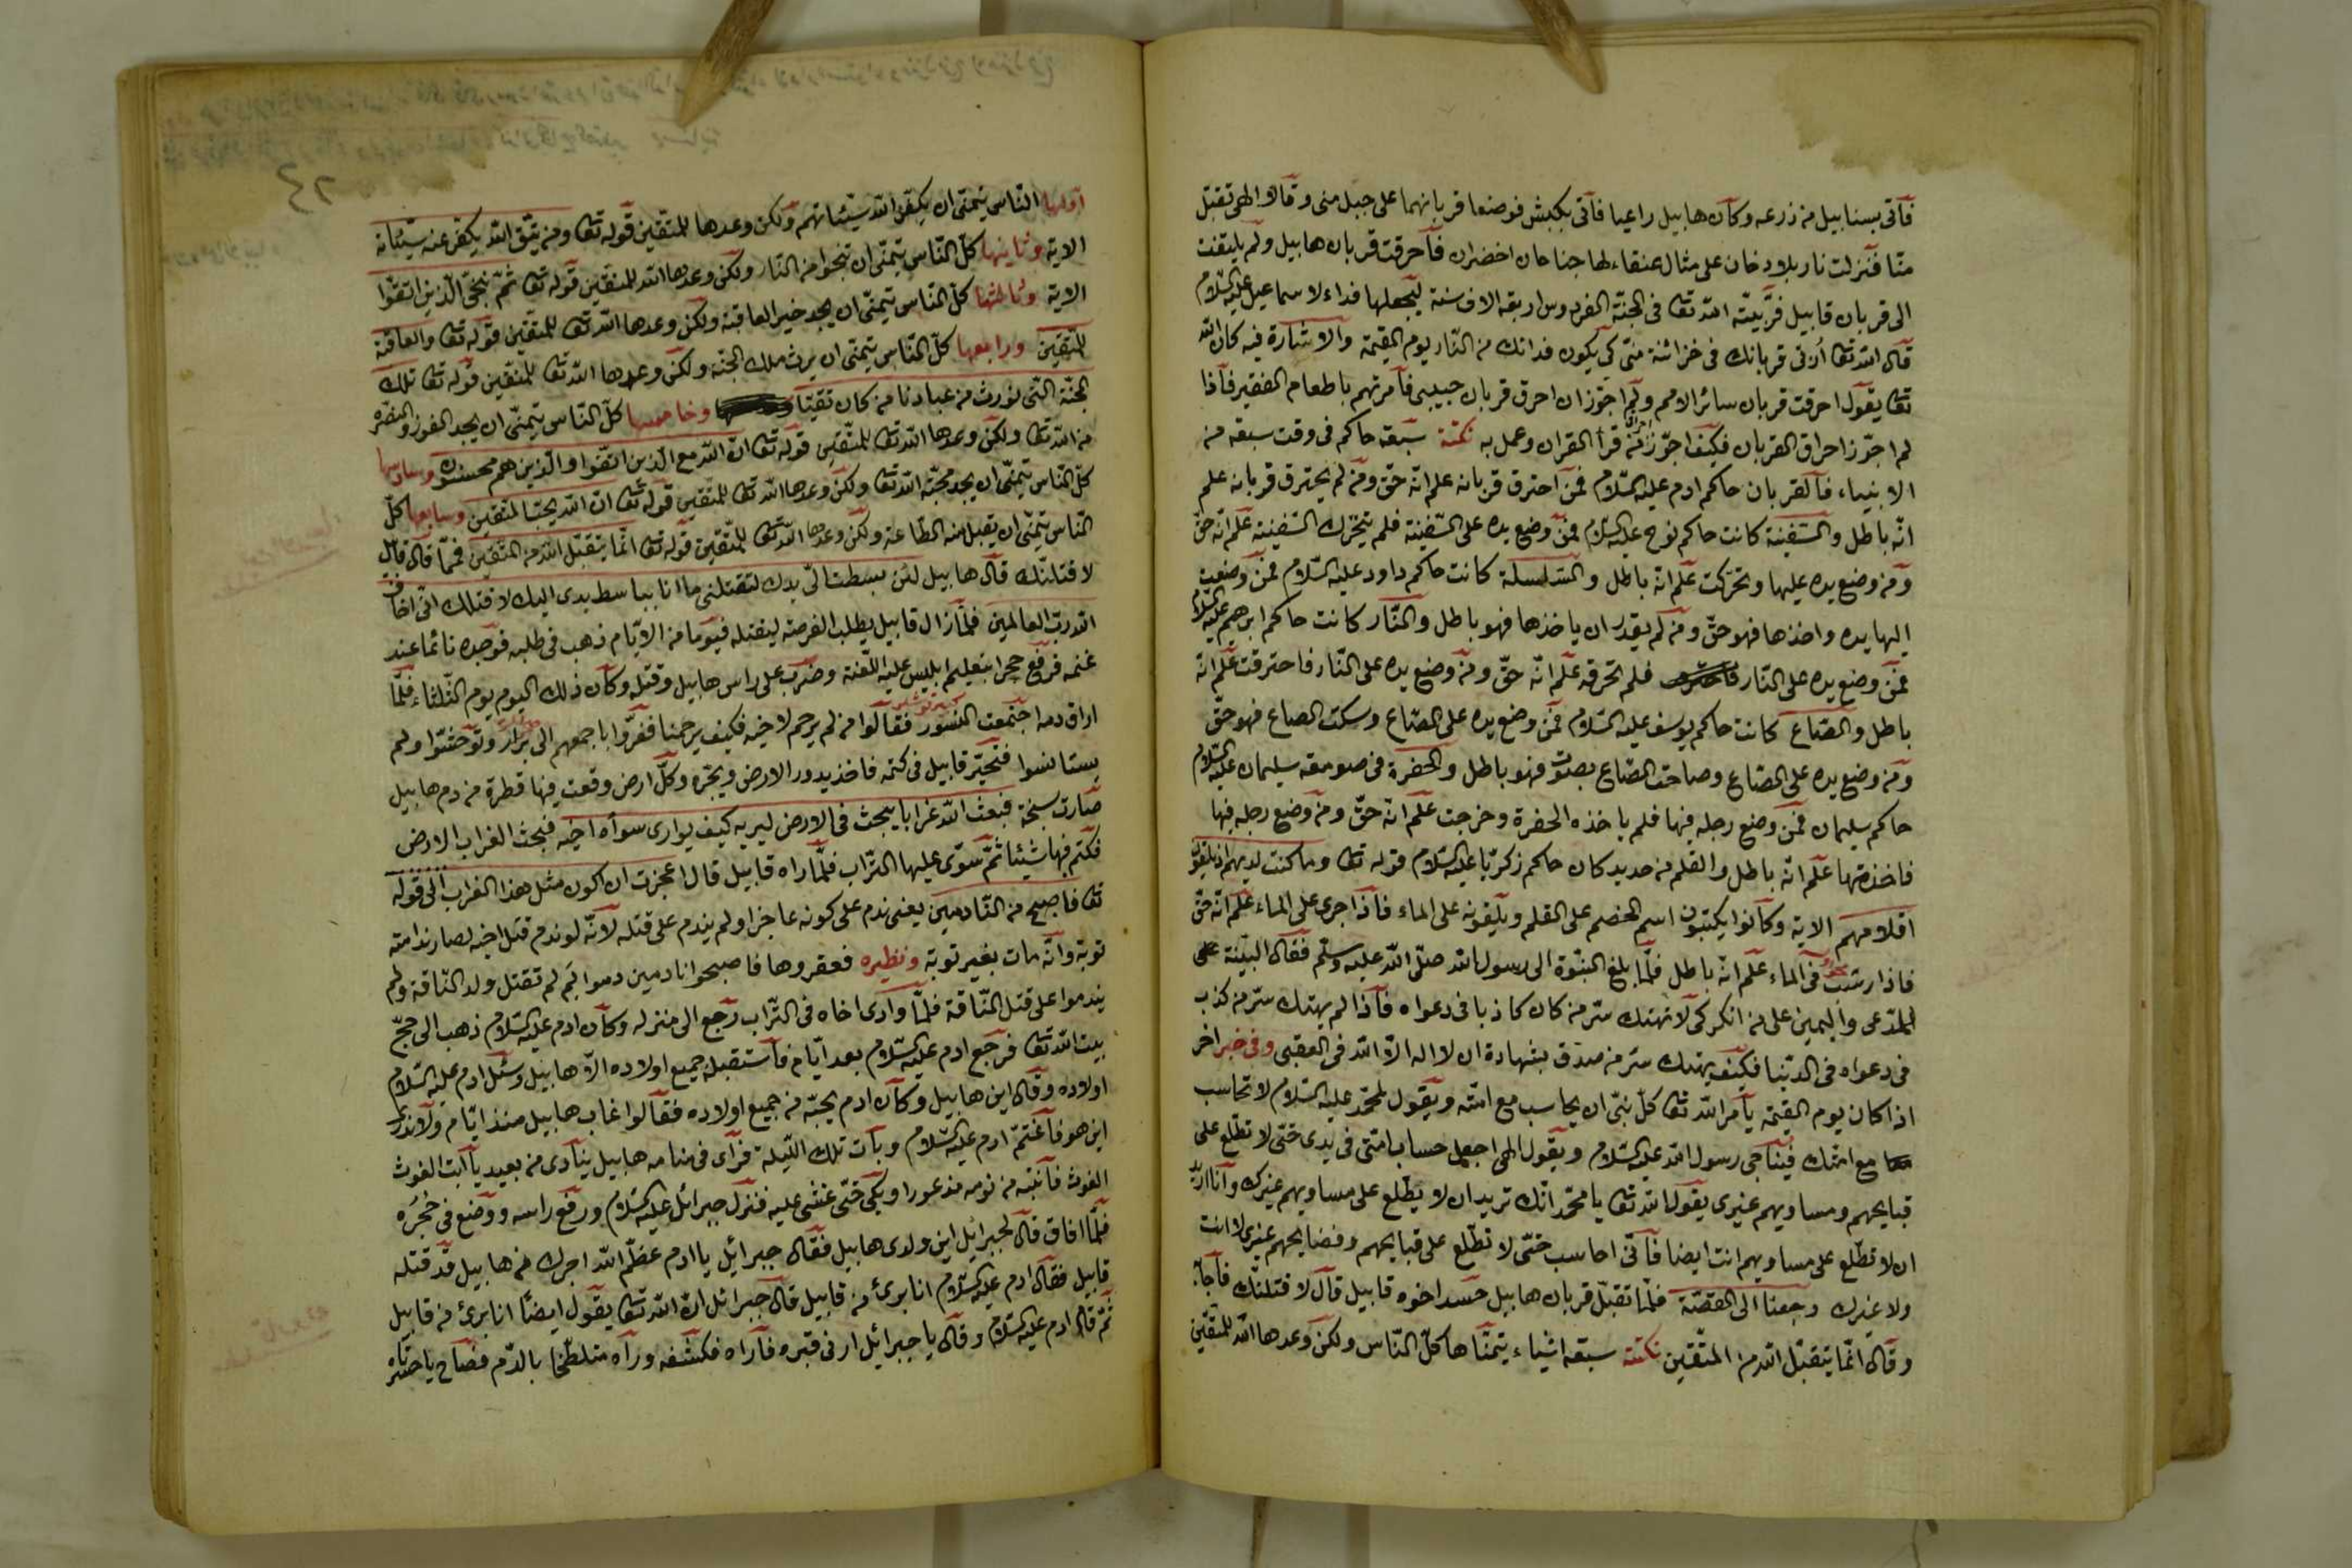 فأتى بسنابيل من زرعه وكان هابيل راعيا فأتى بكبش فوضعا قربانهما على جبل منى وقالا الهى تقبل
منا فنزلت نار بلا دخان على مثال عنقاء لها جناحان اخضران فأحرقت قربان هابيل ولم يلتفت
الى قربان قابيل فربيته الله تعا فى الجنة الفردوس اربعة الاف سنة ليجعلها فداء لاسماعيل عليه السلام
قال الله تعا أرنى قربانك فى خزائنة منى كى يكون فدائك من النار يوم القيمة والاشارة فيه كان الله
تعا يقول احرقت قربان سائر الامم ولم اجوز ان احرق قربان حبيبى فأمرتهم باطعام الفقير فأذا
لم اجوز احراق القربان فكيف اجوز احراق من قرأ القران وعمل به نكتة سبعة حاكم فى وقت سبعة من
الانبياء فالقربان حاكم ادم عليه السلام فمن احترق قربانه علم انه حق ومن لم يحترق قربانه علم
انه باطل والسفينة كانت حاكم نوح عليه السلام فمن وضع يده على السفينة فلم يتحرك السفينة علم انه حق
ومن وضع يده عليها وتحركت علم انه باطل والسلسلة كانت حاكم داود عليه السلام فمن وضعت
اليها يده واخذها فهو حق ومن لم يقدر ان ياخذها فهو باطل والنار كانت حاكم ابرهيم عليه السلام
فمن وضع يده على النار فلم تحرقه علم انه حق ومن وضع يده على النار فاحترقت علم انه
باطل والصاع كانت حاكم يوسف عليه السلام فمن وضع يده على الصاع وسكت الصاع فهو حق
ومن وضع يده على الصاع وصاحت الصاع بصوت فهو باطل والحفرة فى صومعة سليمان عليه السلام
حاكم سليمان فمن وضع رجله فيها فلم ياخذه الحفرة وخرجت علم انه حق ومن وضع رجله فيها
فاخذتها علم انه باطل والقلم من حديد كان حاكم زكريا عليه السلام قوله تعا وما كنت لديهم اذ يلقون
اقلامهم الاية وكانوا يكتبون اسم الخصم على القلم ويلقونه على الماء فأذا جرى على الماء علم انه حق
فاذا رسبت فى الماء علم انه باطل فلما بلغ النبوة الى رسول الله صلى الله عليه وسلم فقال البينة على
المدعى واليمين على من انكر كى لا تهتك ستر من كان كاذبا فى دعواه فأذا لم يهتك ستر من كذب
فى دعواه فى الدنيا فكيف يهتك ستر من صدق بشهادة ان لا اله الا الله فى العقبى وفى خبر اخر
اذا كان يوم القيمة يأمر الله تعا كل نبى ان يحاسب مع امته ويقول لمحمد عليه السلام لا تحاسب
مع امتك فيناجى رسول الله عليه السلام ويقول الهى اجعل حساب امتى فى يدى حتى لا تطلع على
قبايحهم ومساويهم غيرى يقول الله تعا يا محمد انك تريد ان لا يطلع على مساويهم غيرك وأنا اريد
ان لا تطلع على مساويهم انت ايضا فأنى احاسب حتى لا تطلع على قبايحهم وفضايحهم غيرى لا انت
ولا غيرك رجعنا الى القصة فلما تقبل قربان هابيل حسد اخوه قابيل قال لاقتلنك فأجابه
وقال انما يتقبل الله من المتقين نكتة سبعة اشياء يتمناها كل الناس ولكن وعدها الله للمتقين
اولها الناس يتمنى ان يكفر الله سيئاتهم ولكن وعدها للمتقين قوله تعا ومن يتق الله يكفر عنه سيئاته
الاية وثانيها كل الناس يتمنى ان ينجوا من النار ولكن وعدها الله للمتقين قوله تعا ثم ننجى الذين اتقوا
الاية وثالثها كل الناس يتمنى ان يجد خير العاقبة ولكن وعدها الله تعا للمتقين قوله تعا والعاقبة
للمتقين ورابعها كل الناس يتمنى ان يرث ملك الجنة ولكن وعدها الله تعا للمتقين قوله تعا تلك
الجنة التى نورث من عبادنا من كان تقيا وخامسها كل الناس يتمنى ان يجد الفوز والنصرة
من الله تعا ولكن وعدها الله تعا للمتقين قوله تعا ان الله مع الذين اتقوا والذين هم محسنون وسادسها
كل الناس يتمنى ان يجد محبة الله تعا ولكن وعدها الله تعا للمتقين قوله تعا ان الله يحب المتقين وسابعها كل
الناس يتمنى ان يقبل منه الطاعة ولكن وعدها الله تعا للمتقين قوله تعا انما يتقبل الله من المتقين فلما قال قابيل
لاقتلنك قال هابيل لئن بسطت الى يدك لتقتلنى ما انا بباسط يدى اليك لاقتلك انى اخاف
الله رب العالمين فلما زال قابيل يطلب الفرصة ليقتله فيوما من الايام ذهب فى طلبه فوجده نائما عند
غنمه فرفع حجرا بتعليم ابليس عليه اللعنة وضرب على راس هابيل وقتله وكان ذلك اليوم يوم الثلثاء فلما
اراق دمه اجتمعت النسور فقالوا من لم يرحم لاخيه فكيف يرحمنا ففروا باجمعهم الى برار وتوحشوا ولم
يستانسوا فتحير قابيل فى كتمه فاخذ يدور الارض ويجره وكل ارض وقعت فيها قطرة من دم هابيل
صارت سبخة فبعث الله غرابا يبحث فى الارض ليريه كيف يوارى سوأة اخيه فبحث الغراب الارض
فكتم فيها شيئا ثم سوى عليها التراب فلما راه قابيل قال اعجزت ان اكون مثل هذا الغراب الى قوله
تعا فاصبح من النادمين يعنى ندم على كونه عاجزا ولم يندم على قتله لانه لو ندم قتل اخيه لصار ندامته
توبة وانه مات بغير توبة ونظيره فعقروها فاصبحوا نادمين دموا بم لم تقتل ولد الناقة ولم
يندموا على قتل الناقة فلما وادى اخاه فى التراب رجع الى منزله وكان ادم عليه السلام ذهب الى حج
بيت الله تعا فرجع ادم عليه السلام بعد ايام فأستقبله جميع اولاده الا هابيل وسئل ادم عليه السلام
اولاده وقال اين هابيل وكان ادم يحبه من جميع اولاده فقالوا غاب هابيل منذ ايام ولا ندرى
اين هو فأغتم ادم عليه السلام وبات تلك الليلة فرأى فى منامه هابيل ينادى من بعيد يا ابت الغوث
الغوث فأنتبه من نومه مذعورا ويبكى حتى غشى عليه فنزل جبرائل عليه السلام ورفع راسه ووضع فى حجره
فلما افاق قال لجبرائيل اين ولدى هابيل فقال جبرائيل يا ادم عظم الله اجرك من هابيل قد قتله
قابيل فقال ادم عليه السلام انا برئ من قابيل قال جبرائل ان الله تعا يقول ايضا انا برئ من قابيل
ثم قام ادم عليه السلام وقال يا جبرائيل ارنى قبره فأراه فكشفه ورآه متلطخا بالدم فصاح يا حسرتاه